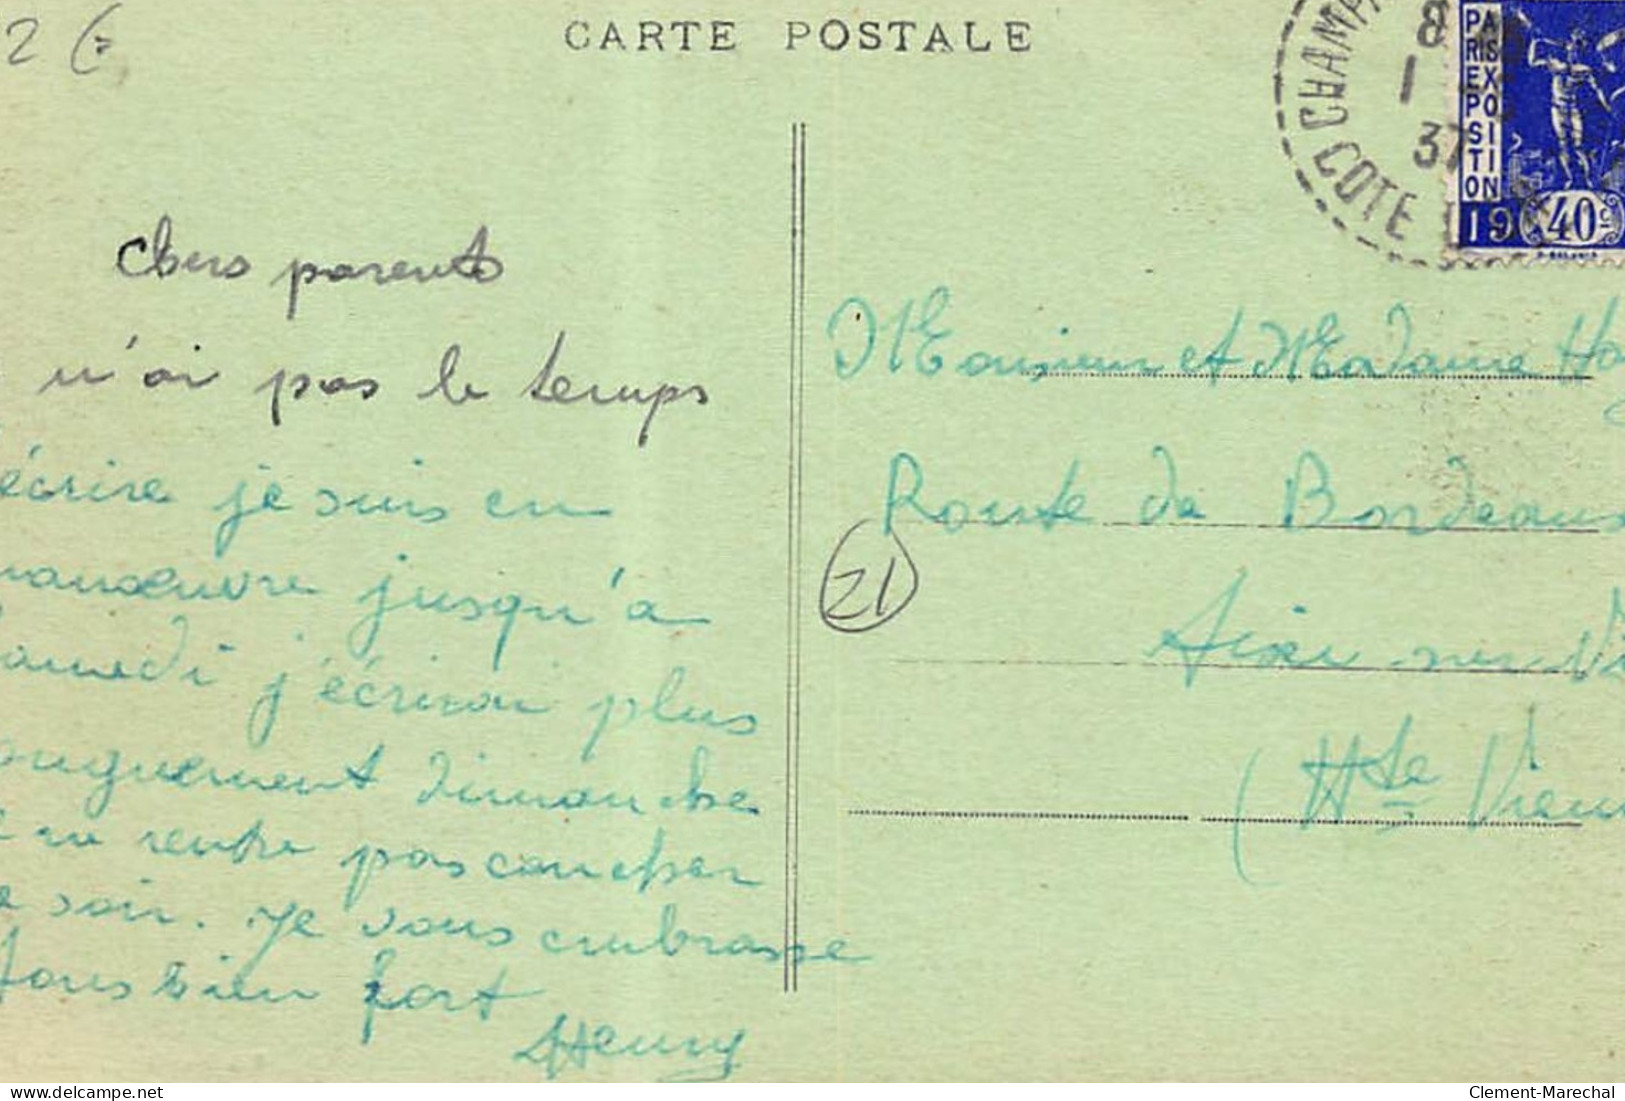 2 €
CARTE POSTALE
CHAMPA
COTE D
8
1
37
PARIS EXPOSITION
19
40c
Chers parents
n'ai pas le temps
écrire je suis en
manœuvre jusqu'à
Samedi j'écrirai plus
longuement dimanche
ne rentre pas coucher
ce soir. Je vous embrasse
tous bien fort
Henry
Monsieur et Madame
Route de Bordeaux
21
Aixe sur Vi
(Hte Vienn
delcampe.net
Clement-Marechal